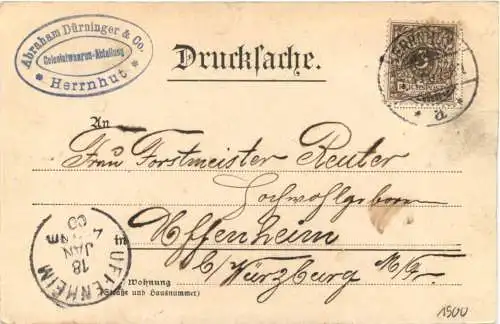 Abraham Dürninger & Co.
Colonialwaaren-Abteilung
* Herrnhut *
Drucksache.
An
Frau Forstmeister Reuter
Hochwohlgeboren
in Uffenheim
b/Würzburg
Wohnung
(Straße und Hausnummer)
UFFENHEIM
18
JAN
00
1900